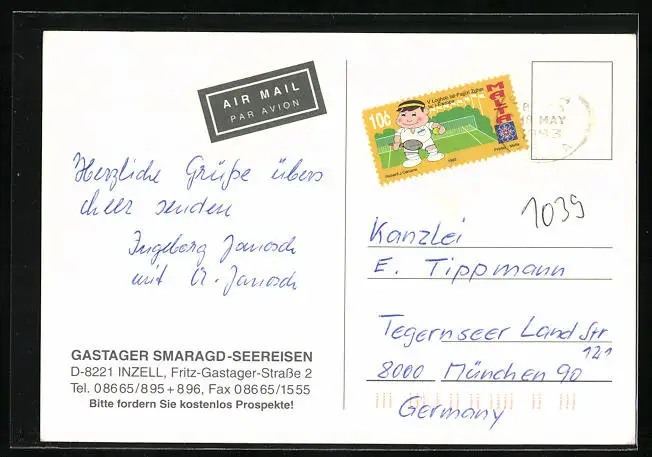 AIR MAIL
PAR AVION
10c
V Logħob tal-Pajjiżi Żgħar
ta' l-Ewropa
MALTA
1993
MAY
993
1039
Herzliche Grüße übers
Meer senden
Ingeborg Janosch
mit A. Janosch
Kanzlei
E. Tippmann
Tegernseer Land Str
121
8000 München 90
Germany
GASTAGER SMARAGD-SEEREISEN
D-8221 INZELL, Fritz-Gastager-Straße 2
Tel. 0 86 65 / 895 + 896, Fax 0 86 65 / 15 55
Bitte fordern Sie kostenlos Prospekte!